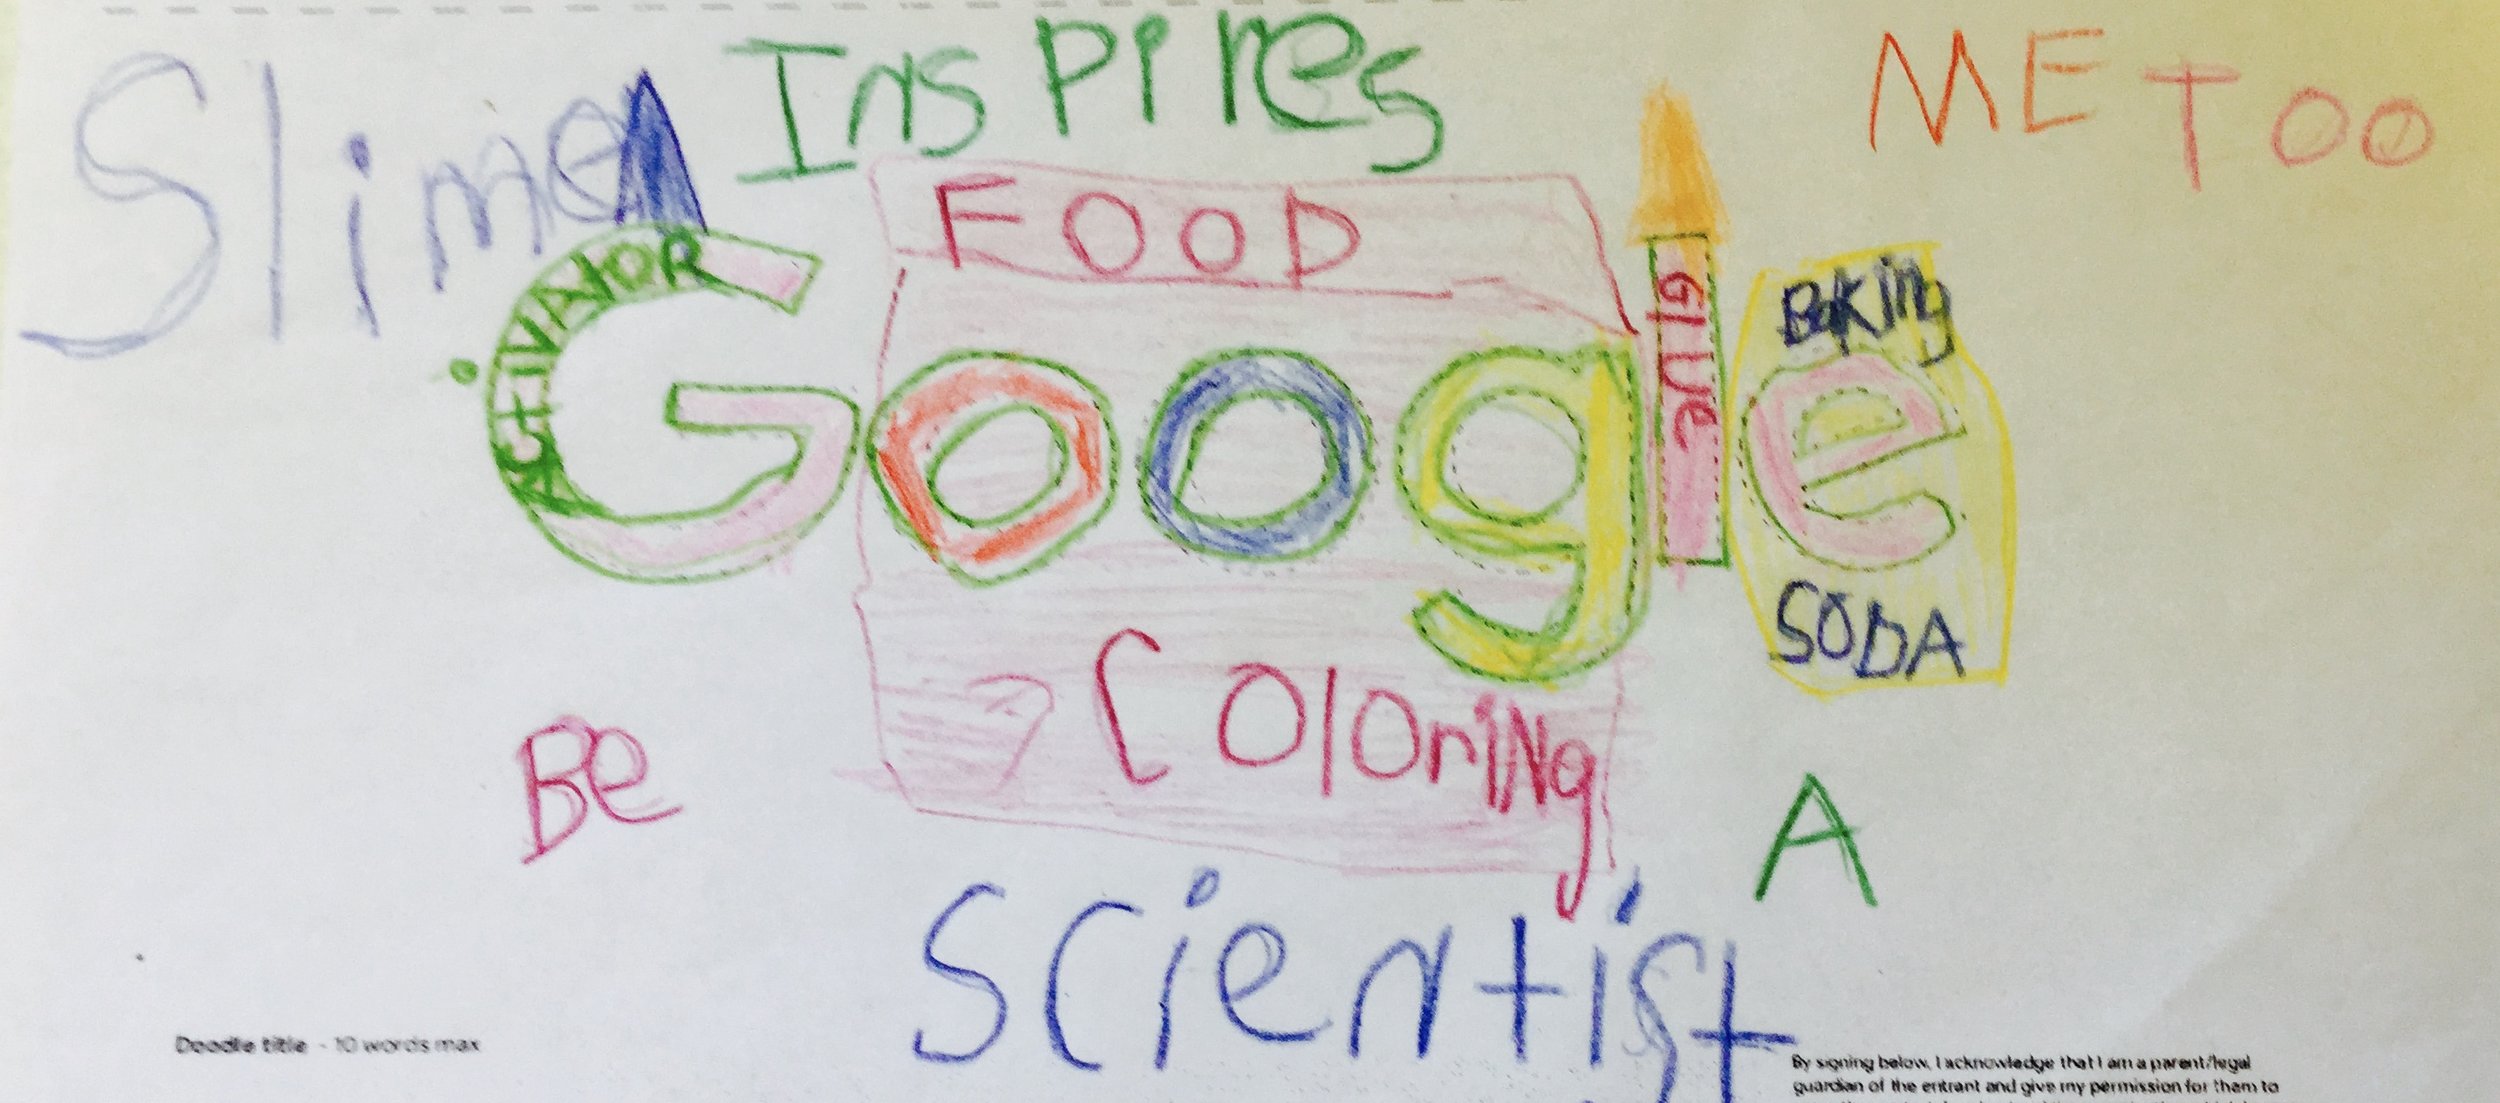 Slime Inspires ME TOO
FOOD
ACtIVAtOR
Google
GlUe
BaKing
SODA
COlOriNg
Be A
Scientist
Doodle title - 10 words max
By signing below, I acknowledge that I am a parent/legal
guardian of the entrant and give my permission for them to